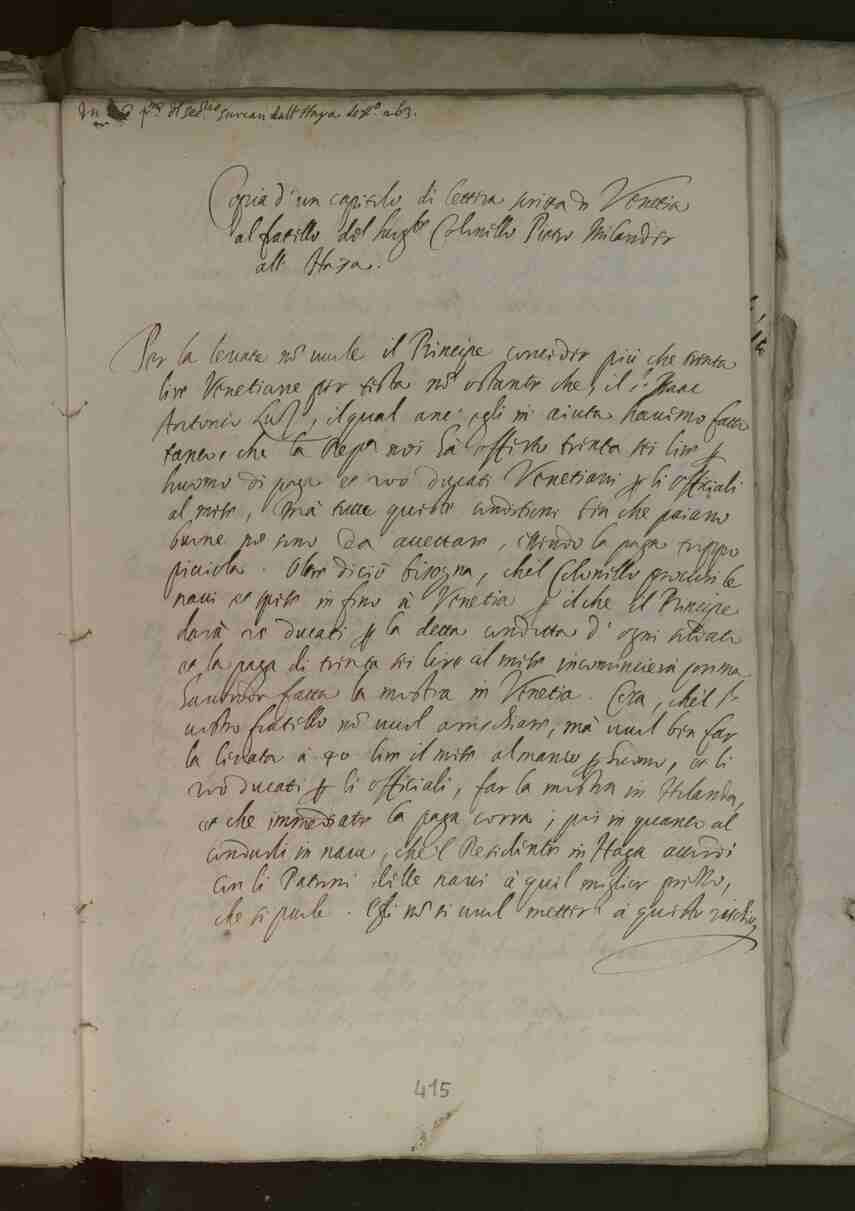 In p.ma del Seg.rio Surian dall' Haya di n.o 263.
Copia d'un capitulo di lettera scritta da Venetia
al fratello del Colonello Pietro Milander
all' Haga.
Per la levata nō vuole il Principe conceder più che trenta
lire Venetiane per testa nō ostante che, il S.r
Antonio, il qual anc' egli in aiuta havemo fatto
tanto, che la Rep.ca noi hà offerto trinta sei lire ꝑ
huomo di paga et 200 ducati Venetiani ꝑ li officiali
al mese, mà tutte queste conditioni ben che paiano
buone nō sono da accettare, essendo la paga troppo
picciola. Oltre di ciò bisogna, ch'el Colonello procuri le
navi et spese in fino à Venetia ꝑ il che il Principe
darà ducati ꝑ la detta condutta d' ogni soldato
et la paga di trinta sei lire al mese incomincierà prima
havendo fatta la mostra in Venetia. Ora, ch'el S.r
vostro fratello nō vuol arrischiare, mà vuol ben far
la levata à 40 lire il mese almanco ꝑ huomo, et li
200 ducati ꝑ li officiali, far la mostra in Holanda,
et che immediate la paga corra; poi in quanto al
condurli in nave, ch'el Residente in Haga accordi
con li Patroni delle navi à quel miglior prezzo,
che si puole. Egli nō si vuol metter à questo rischio
415